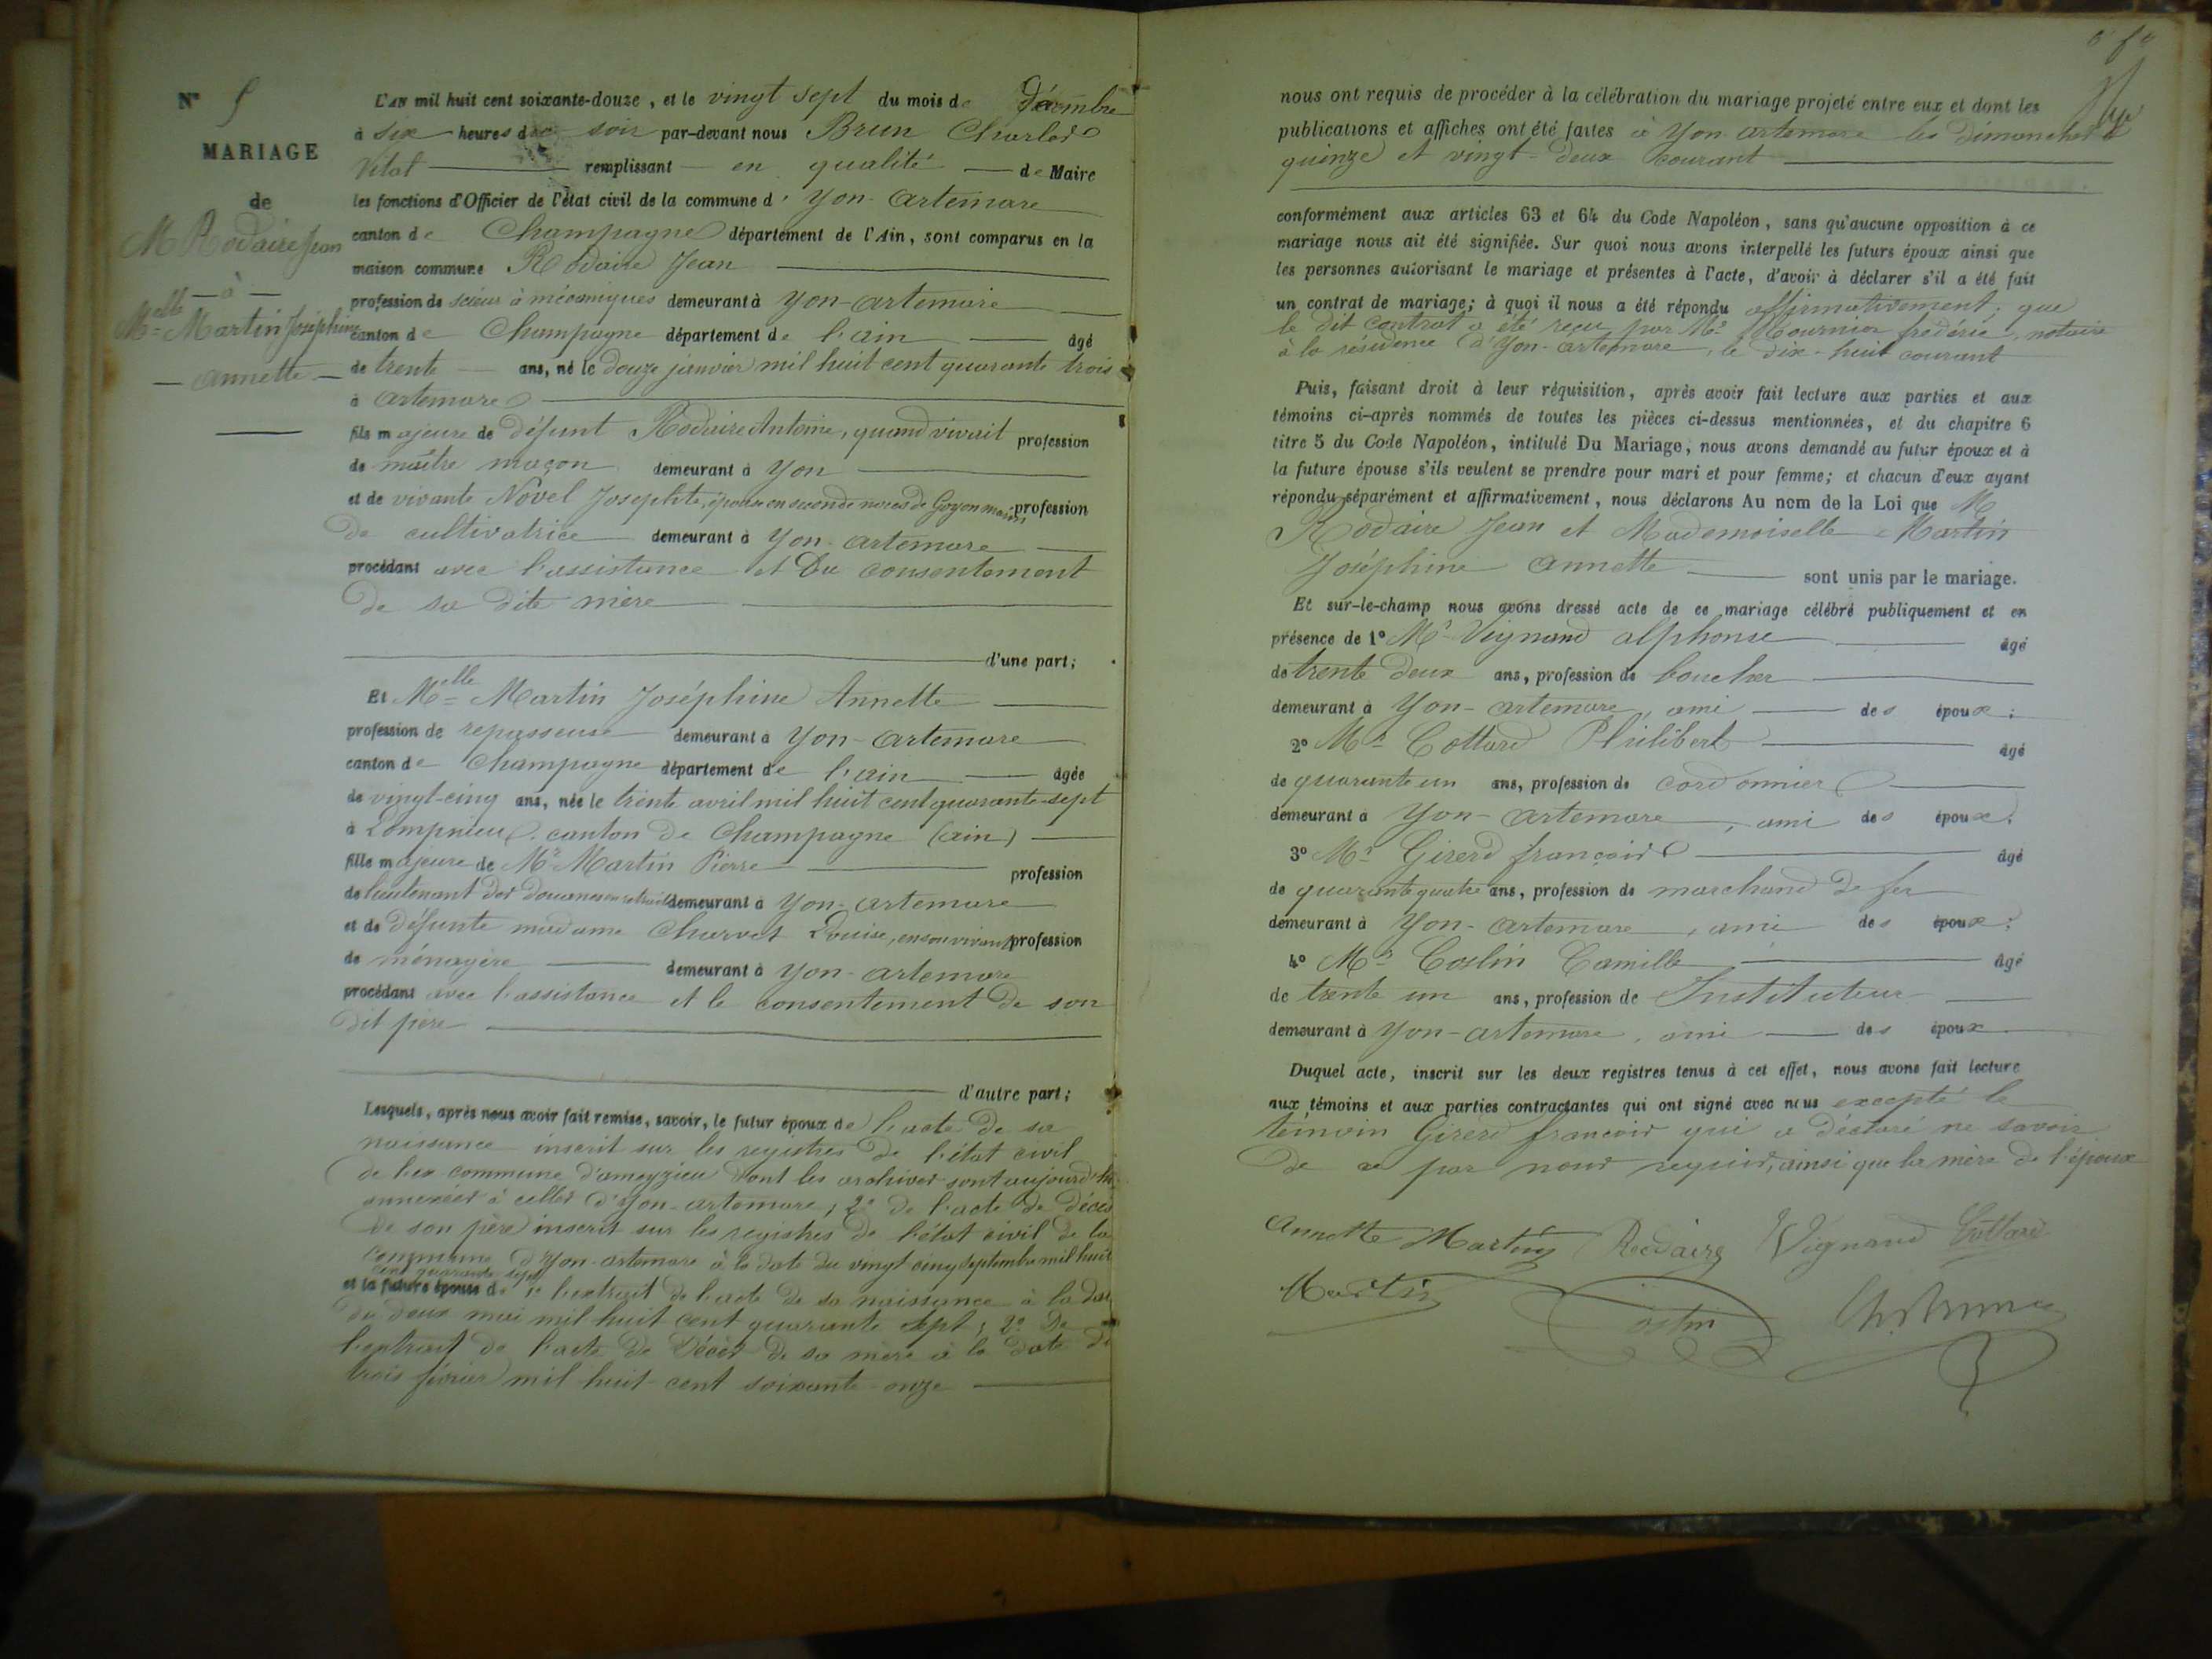 N° 5
MARIAGE
de
M Rodaire Jean
— à —
Melle Martin Joséphine
— Annette —
L'AN mil huit cent soixante-douze, et le vingt sept du mois de Décembre
à six heures du soir par-devant nous Brun Charles
Vital remplissant en qualité de Maire
les fonctions d'Officier de l'état civil de la commune d' Yon-Artemare
canton de Champagne département de l'Ain, sont comparus en la
maison commune Rodaire Jean
profession de scieur à mécaniques demeurant à Yon-Artemare
canton de Champagne département de l'ain âgé
de trente ans, né le douze janvier mil huit cent quarante trois
à Artemare
fils majeure de défunt Rodaire Antoine, quand vivait profession
de maître maçon demeurant à Yon
et de vivante Novel Josephte, épouse en seconde noces de Goyon profession
de cultivatrice demeurant à Yon-Artemare
procédant avec l'assistance et Du consentement
de sa dite mère
d'une part;
Et Melle Martin Joséphine Annette
profession de repasseuse demeurant à Yon-Artemare
canton de Champagne département de l'ain âgée
de vingt-cinq ans, née le trente avril mil huit cent quarante-sept
à Lompnieu, canton de Champagne (ain)
fille majeure de Mr Martin Pierre profession
de lieutenant des Douanes en retraite demeurant à Yon-Artemare
et de défunte madame Charvet Louise, en son vivant profession
de ménagère demeurant à Yon-Artemare
procédant avec l'assistance et le consentement de son
dit père
d'autre part;
Lesquels, après nous avoir fait remise, savoir, le futur époux de l'acte de sa
naissance inscrit sur les registres de l'état civil
de l'ex commune d'ameyzieu dont les archives sont aujourd'hui
annexées à celles d'Yon-artemare; 2° de l'acte de décès
de son père inscrit sur les registres de l'état civil de la
commune d'Yon-artemare à la date du vingt cinq septembre mil huit
cent quarante-sept
et la future épouse de 1° l'extrait de l'acte de sa naissance à la date
du deux mai mil huit cent quarante sept; 2° De
l'extrait de l'acte de décès de sa mère à la date du
trois février mil huit cent soixante-onze
nous ont requis de procéder à la célébration du mariage projeté entre eux et dont les
publications et affiches ont été faites à Yon-artemare les dimanches
quinze et vingt-deux courant
conformément aux articles 63 et 64 du Code Napoléon, sans qu'aucune opposition à ce
mariage nous ait été signifiée. Sur quoi nous avons interpellé les futurs époux ainsi que
les personnes autorisant le mariage et présentes à l'acte, d'avoir à déclarer s'il a été fait
un contrat de mariage; à quoi il nous a été répondu affirmativement; que
le dit contrat a été reçu par Me frédéric, notaire
à la résidence d'Yon-artemare, le dix-huit courant
Puis, faisant droit à leur réquisition, après avoir fait lecture aux parties et aux
témoins ci-après nommés de toutes les pièces ci-dessus mentionnées, et du chapitre 6
titre 5 du Code Napoléon, intitulé Du Mariage, nous avons demandé au futur époux et à
la future épouse s'ils veulent se prendre pour mari et pour femme; et chacun d'eux ayant
répondu séparément et affirmativement, nous déclarons Au nom de la Loi que M
Rodaire Jean et Mademoiselle Martin
Joséphine Annette sont unis par le mariage.
Et sur-le-champ nous avons dressé acte de ce mariage célébré publiquement et en
présence de 1° Mr Vignand alphonse âgé
de trente deux ans, profession de boucher
demeurant à Yon-Artemare, ami des époux;
2° Mr Cottard Philibert âgé
de quarante un ans, profession de cordonnier
demeurant à Yon-Artemare, ami des époux;
3° Mr Girerd françois âgé
de quarante quatre ans, profession de marchand de fer
demeurant à Yon-Artemare, ami des époux;
4° Mr Camille âgé
de trente un ans, profession de Instituteur
demeurant à Yon-artemare, ami des époux
Duquel acte, inscrit sur les deux registres tenus à cet effet, nous avons fait lecture
aux témoins et aux parties contractantes qui ont signé avec nous excepté le
témoin Girerd françois qui a déclaré ne savoir
de ce par nous requis, ainsi que la mère de l'époux
Annette Martin Rodaire Vignand Cottard
Martin